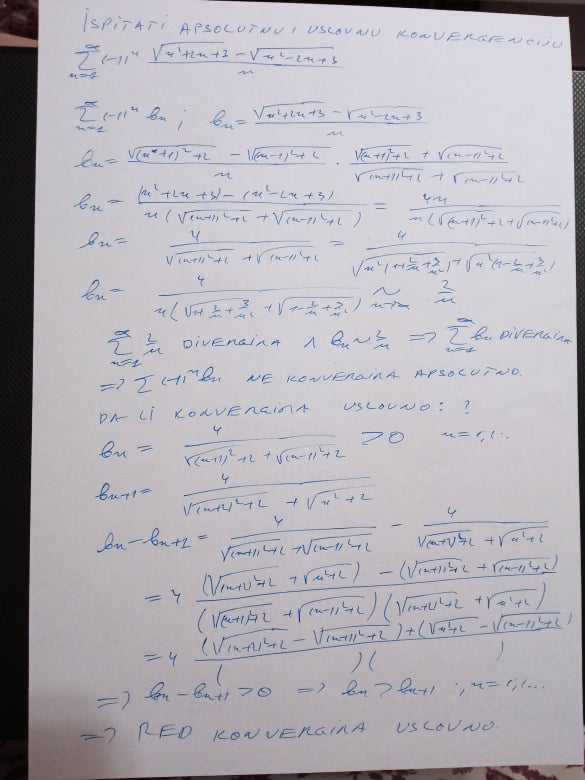 ISPITATI APSOLUTNU I USLOVNU KONVERGENCIJU
∑_{n=1}^{∞} (-1)^n (√(n²+2n+3) - √(n²-2n+3))/n
∑_{n=1}^{∞} (-1)^n bn ; bn = (√(n²+2n+3) - √(n²-2n+3))/n
bn = (√((n+1)²+2) - √((n-1)²+2))/n · (√((n+1)²+2) + √((n-1)²+2))/(√((n+1)²+2) + √((n-1)²+2))
bn = ((n²+2n+3) - (n²-2n+3))/(n(√((n+1)²+2) + √((n-1)²+2))) = 4n/(n(√((n+1)²+2) + √((n-1)²+2)))
bn = 4/(√((n+1)²+2) + √((n-1)²+2)) = 4/(√(n²(1+2/n+3/n²)) + √(n²(1-2/n+3/n²)))
bn = 4/(n(√(1+2/n+3/n²) + √(1-2/n+3/n²))) ~_{n→∞} 2/n
∑_{n=1}^{∞} 2/n DIVERGIRA ∧ bn ~ 2/n => ∑_{n=1}^{∞} bn DIVERGIRA
=> ∑ (-1)^n bn NE KONVERGIRA APSOLUTNO.
DA LI KONVERGIRA USLOVNO: ?
bn = 4/(√((n+1)²+2) + √((n-1)²+2)) > 0 n=1,2..
bn+1 = 4/(√((n+2)²+2) + √(n²+2))
bn - bn+1 = 4/(√((n+1)²+2) + √((n-1)²+2)) - 4/(√((n+2)²+2) + √(n²+2))
= 4 ((√((n+2)²+2) + √(n²+2)) - (√((n+1)²+2) + √((n-1)²+2)))/((√((n+1)²+2) + √((n-1)²+2))(√((n+2)²+2) + √(n²+2)))
= 4 ((√((n+2)²+2) - √((n+1)²+2)) + (√(n²+2) - √((n-1)²+2)))/( )( )
=> bn - bn+1 > 0 => bn > bn+1 ; n=1,2...
=> RED KONVERGIRA USLOVNO.